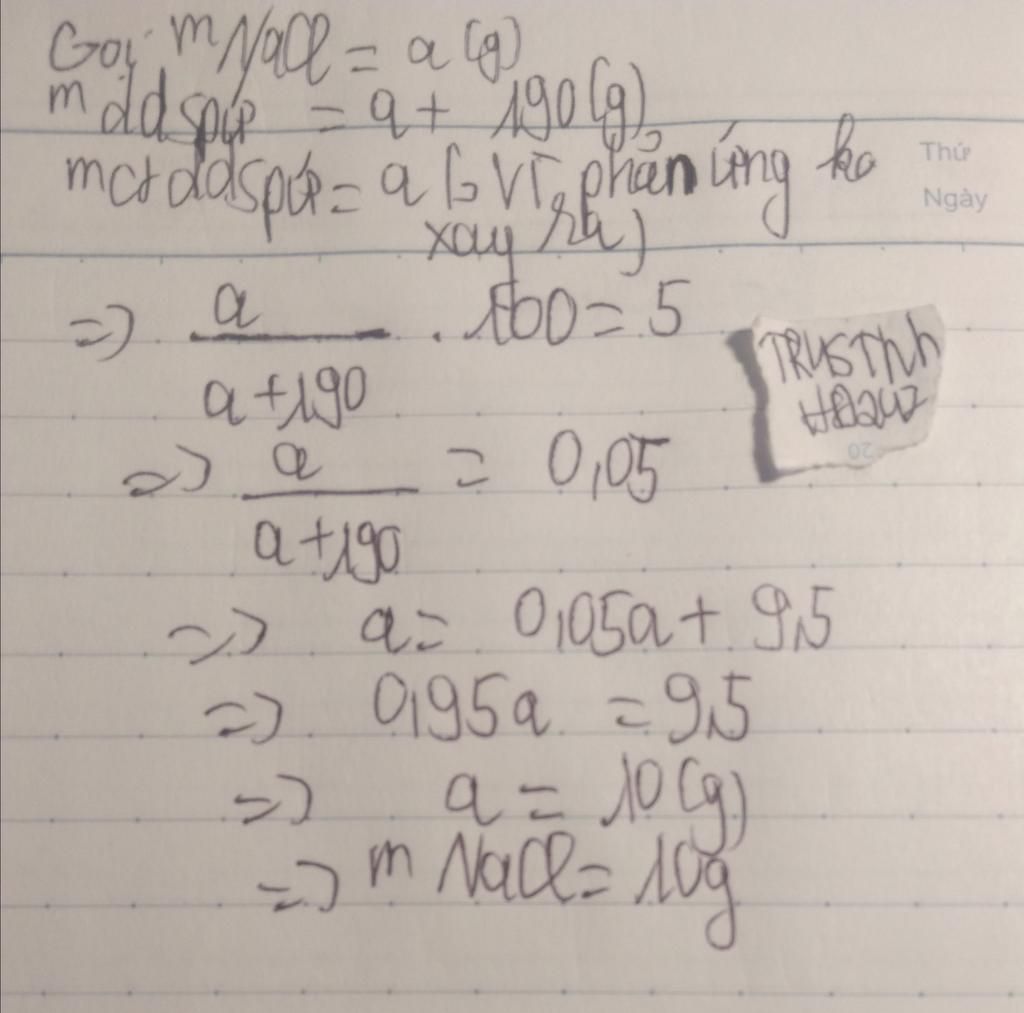 Gọi mNaCl = a (g)
mddspứ = a + 190 (g)
mctddspứ = a (Vì phản ứng ko
xảy ra)
Thứ
Ngày
=> a / a+190 . 100 = 5
=> a / a+190 = 0,05
=> a = 0,05a + 9,5
=> 0,95a = 9,5
=> a = 10 (g)
=> mNaCl = 10g
20